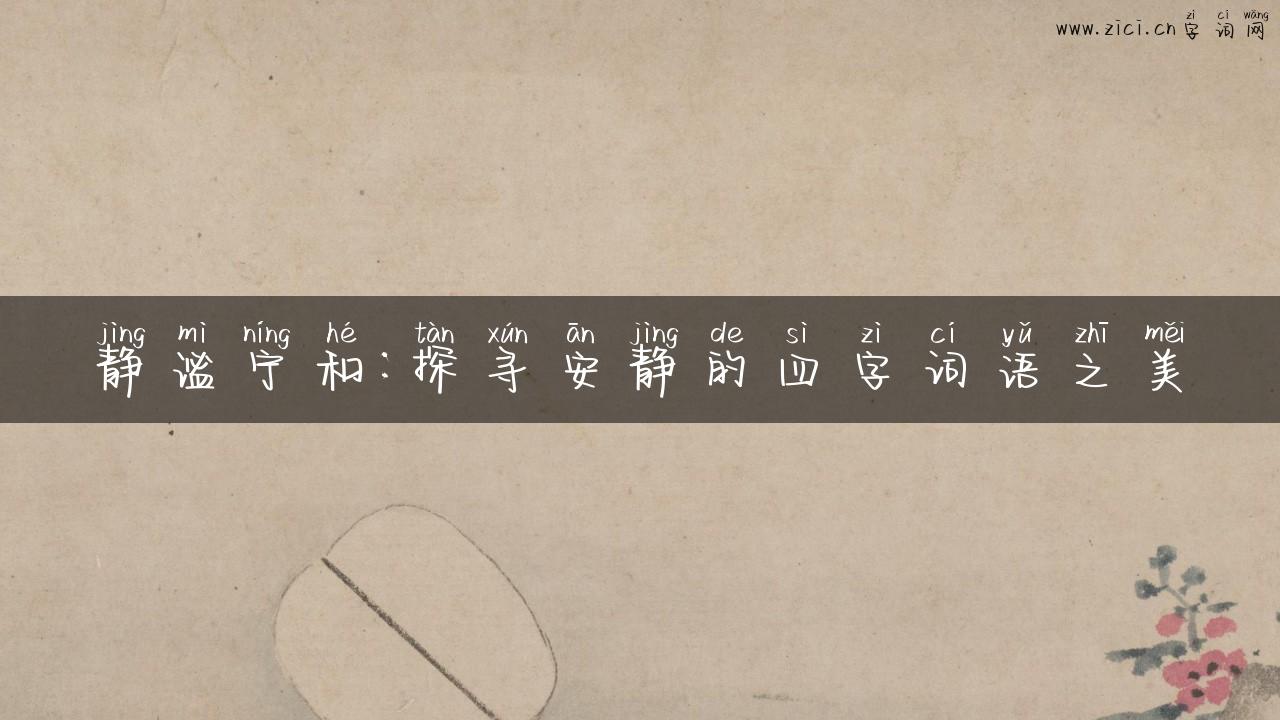 zì cí wǎng
www.zici.cn 字词网
jìng mì níng hé tàn xún ān jìng de sì zì cí yǔ zhī měi
静谧宁和：探寻安静的四字词语之美